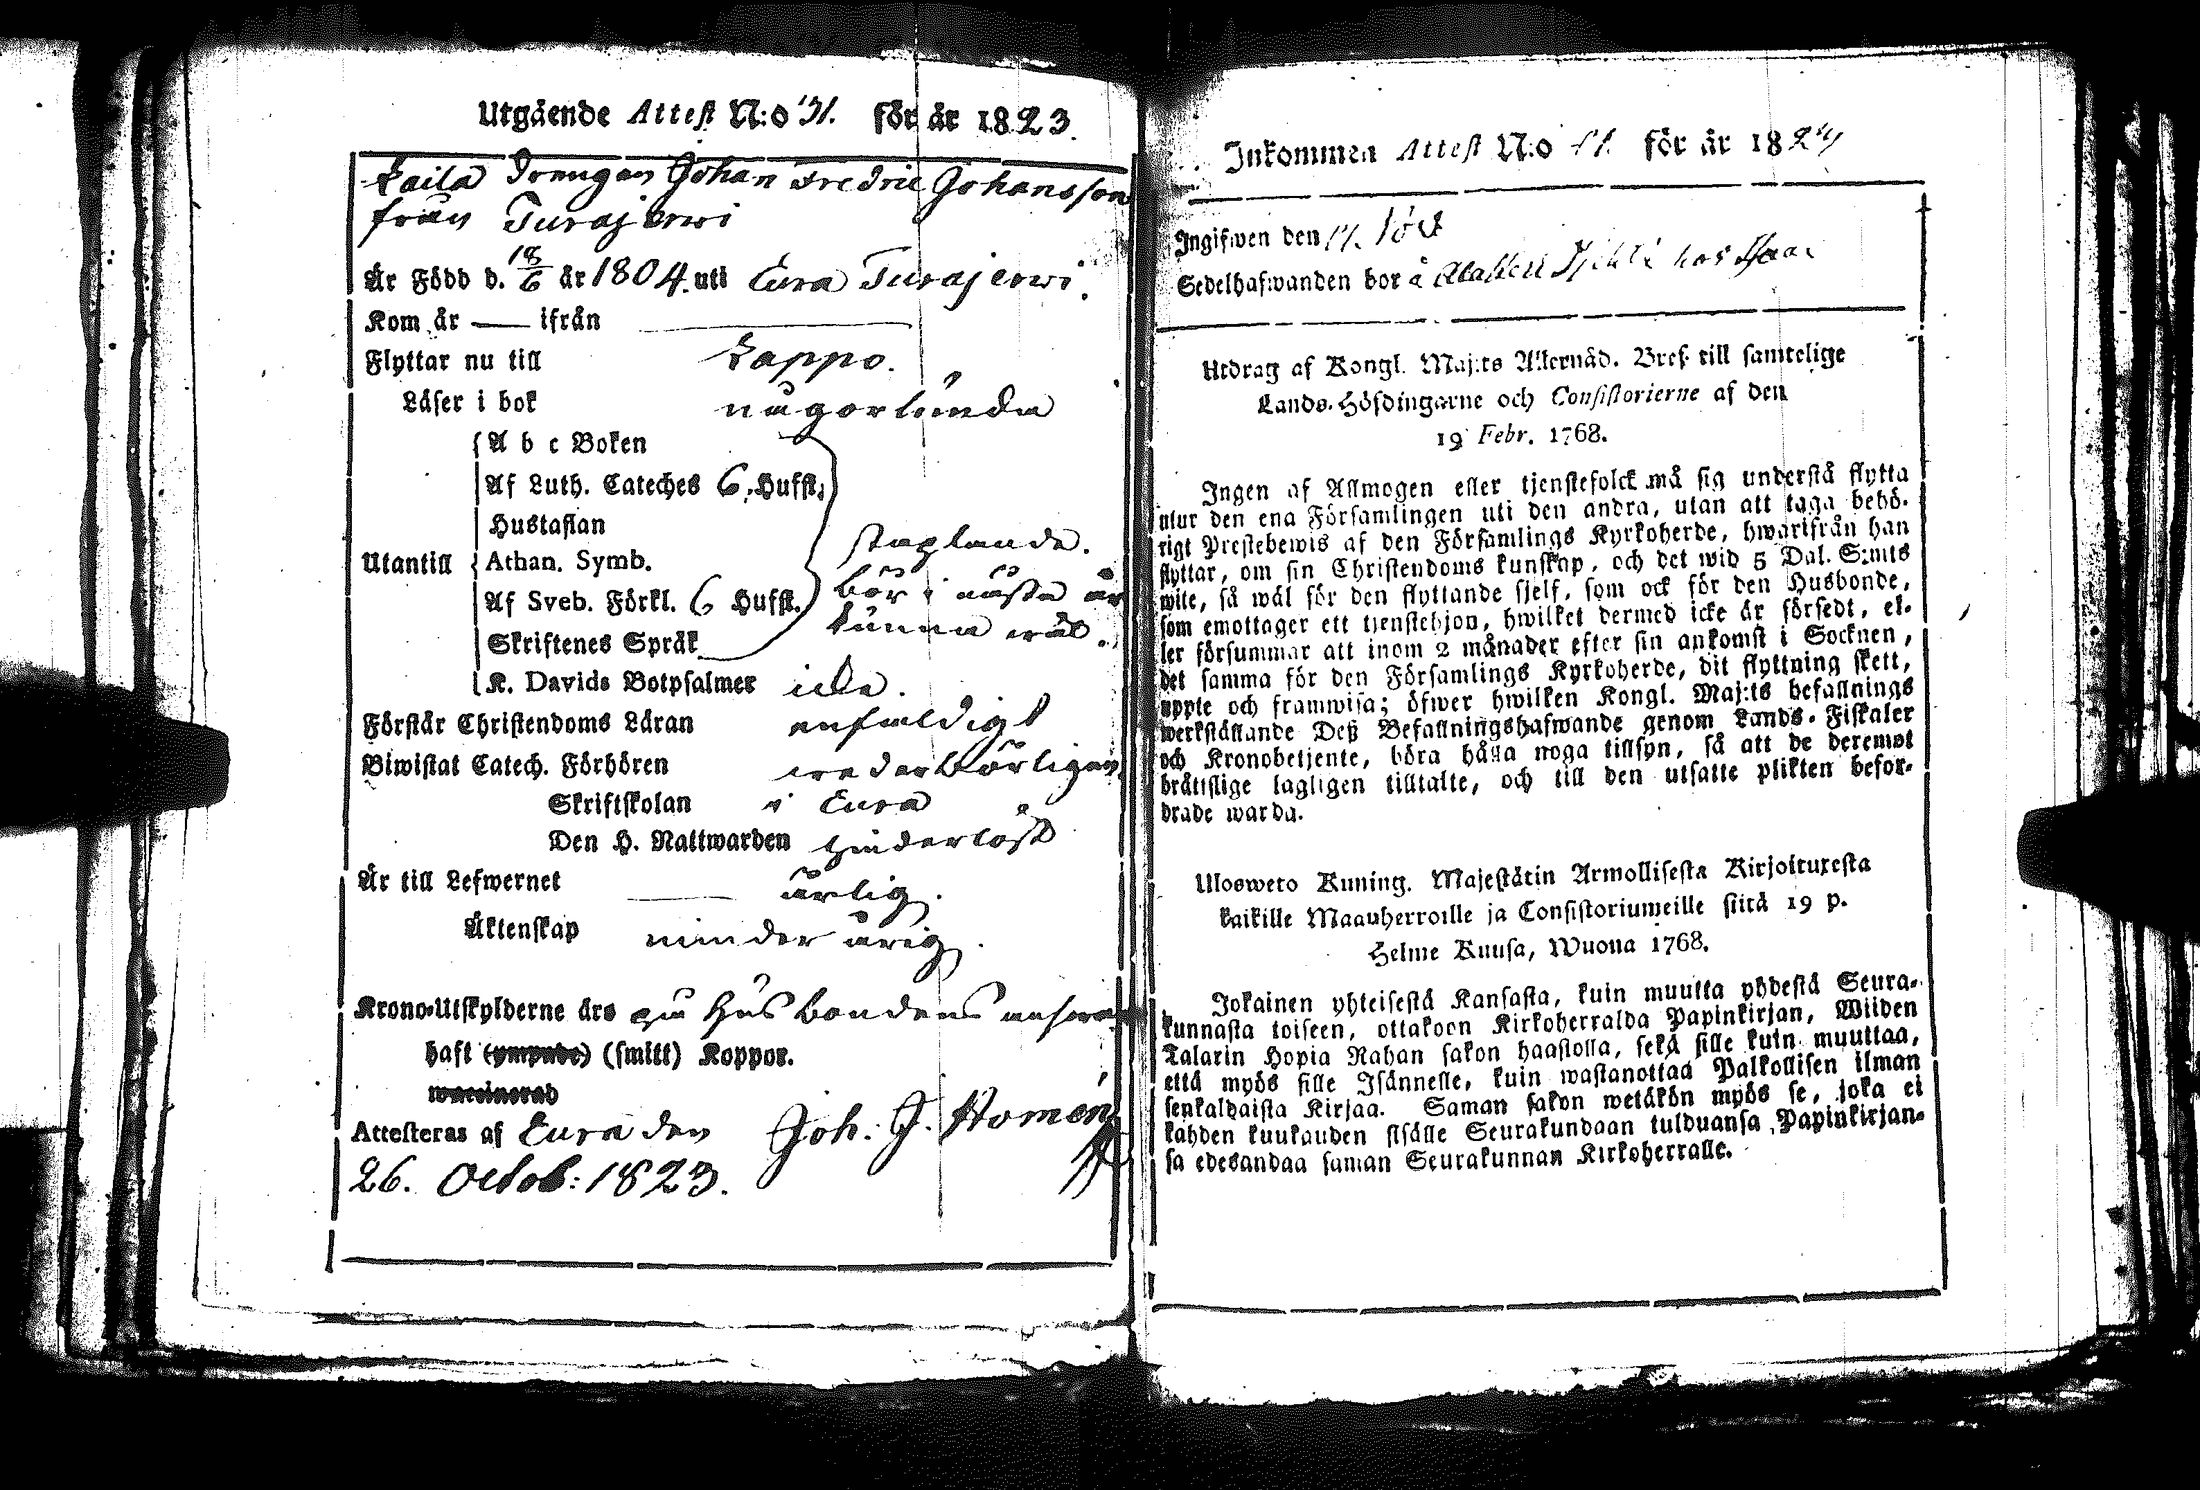 Utgående Attest N:o 31. för år 1823.
Kaila Drängen Johan Fredric Johansson
från Turajerwi
Är Född d. 18/6 år 1804. uti Eura Turajerwi.
Kom år — ifrån —
Flyttar nu till Lappo.
Läser i bok någorlunda
A b c Boken
Af Luth. Cateches 6. Hufst.
Hustaflan
staplande.
Utantill Athan. Symb.
bör i nästa år
Af Sveb. Förkl. 6 Hufst.
kunna wäl.
Skriftenes Språk
K. Davids Botpsalmer icke.
Förstår Christendoms Läran enfaldigt
Biwistat Catech. Förhören wederbörligen
Skriftskolan i Eura
Den H. Nattwarden hinderlöst
Är till Lefwernet — ärlig.
Äktenskap minderårig.
Krono-Utskylderne äro på Husbondens
haft (ympade) (smitt) Koppor.
waccinerad
Attesteras af Eura den Joh. J. Homén
26. Octob: 1823.
Inkommen Attest N:o för år 1824
Ingifwen den
Sedelhafwanden bor å hos
Utdrag af Kongl. Maj:ts Allernåd. Bref till samtelige
Lands-Höfdingarne och Consistorierne af den
19 Febr. 1768.
Ingen af Allmogen eller tjenstefolck må sig understå flytta
utur den ena Församlingen uti den andra, utan att taga behö-
rigt Prestebewis af den Församlings Kyrkoherde, hwarifrån han
flyttar, om sin Christendoms kunskap, och det wid 5 Dal. S:mts
wite, så wäl för den flyttande sjelf, som ock för den Husbonde,
som emottager ett tjenstehjon, hwilket dermed icke är försedt, el-
ler försummar att inom 2 månader efter sin ankomst i Socknen,
det samma för den Församlings Kyrkoherde, dit flyttning skett,
uppte och framwisa; öfwer hwilken Kongl. Maj:ts befallnings
werkställande Deß Befallningshafwande genom Lands-Fiskaler
och Kronobetjente, böra hålla noga tillsyn, så att de deremot
bråttslige lagligen tilltalte, och till den utsatte plikten befor-
drade warda.
Ulosweto Kuning. Majestätin Armollisesta Kirjoituxesta
kaikille Maauherroille ja Consistoriumeille siitä 19 p.
Helme Kuusa, Wuona 1768.
Jokainen yhteisestä Kansasta, kuin muutta yhdestä Seura-
kunnasta toiseen, ottakoon Kirkoherralda Papinkirjan, Wiiden
Talarin Hopia Rahan sakon haastolla, sekä sille kuin muuttaa,
että myös sille Isännelle, kuin wastanottaa Palkollisen ilman
senkaldaista Kirjaa. Saman sakon wetäkön myös se, joka ei
kahden kuukauden sisälle Seurakundaan tulduansa Papinkirjan-
sa edesandaa saman Seurakunnan Kirkoherralle.